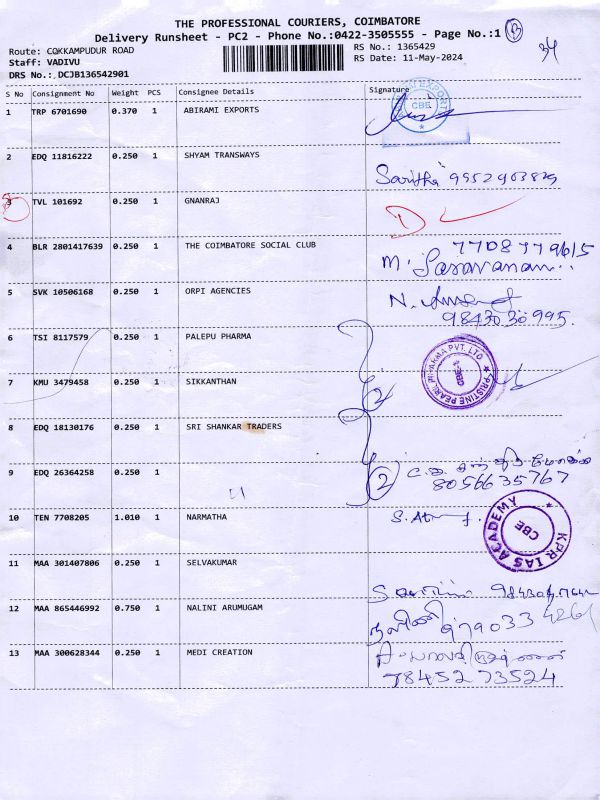 THE PROFESSIONAL COURIERS, COIMBATORE
Delivery Runsheet - PC2 - Phone No.:0422-3505555 - Page No.:1
Route: COKKAMPUDUR ROAD RS No.: 1365429
Staff: VADIVU RS Date: 11-May-2024
DRS No.: DCJB136542901
S No Consignment No Weight PCS Consignee Details Signature
1 TRP 6701690 0.370 1 ABIRAMI EXPORTS
CBE
2 EDQ 11816222 0.250 1 SHYAM TRANSWAYS
Saritha 9952903829
3 TVL 101692 0.250 1 GNANRAJ
D
4 BLR 2801417639 0.250 1 THE COIMBATORE SOCIAL CLUB
7708779615
M. Saravanan
5 SVK 10506168 0.250 1 ORPI AGENCIES
N.
9843030995.
6 TSI 8117579 0.250 1 PALEPU PHARMA
PRISTINE PEARL PHARMA PVT. LTD
CBE
7 KMU 3479458 0.250 1 SIKKANTHAN
2
8 EDQ 18130176 0.250 1 SRI SHANKAR TRADERS
9 EDQ 26364258 0.250 1
2
8056635767
10 TEN 7708205 1.010 1 NARMATHA
S.
KPR IAS ACADEMY
CBE
11 MAA 301407806 0.250 1 SELVAKUMAR
12 MAA 865446992 0.750 1 NALINI ARUMUGAM
நளினி 9790334261
13 MAA 300628344 0.250 1 MEDI CREATION
7845273524